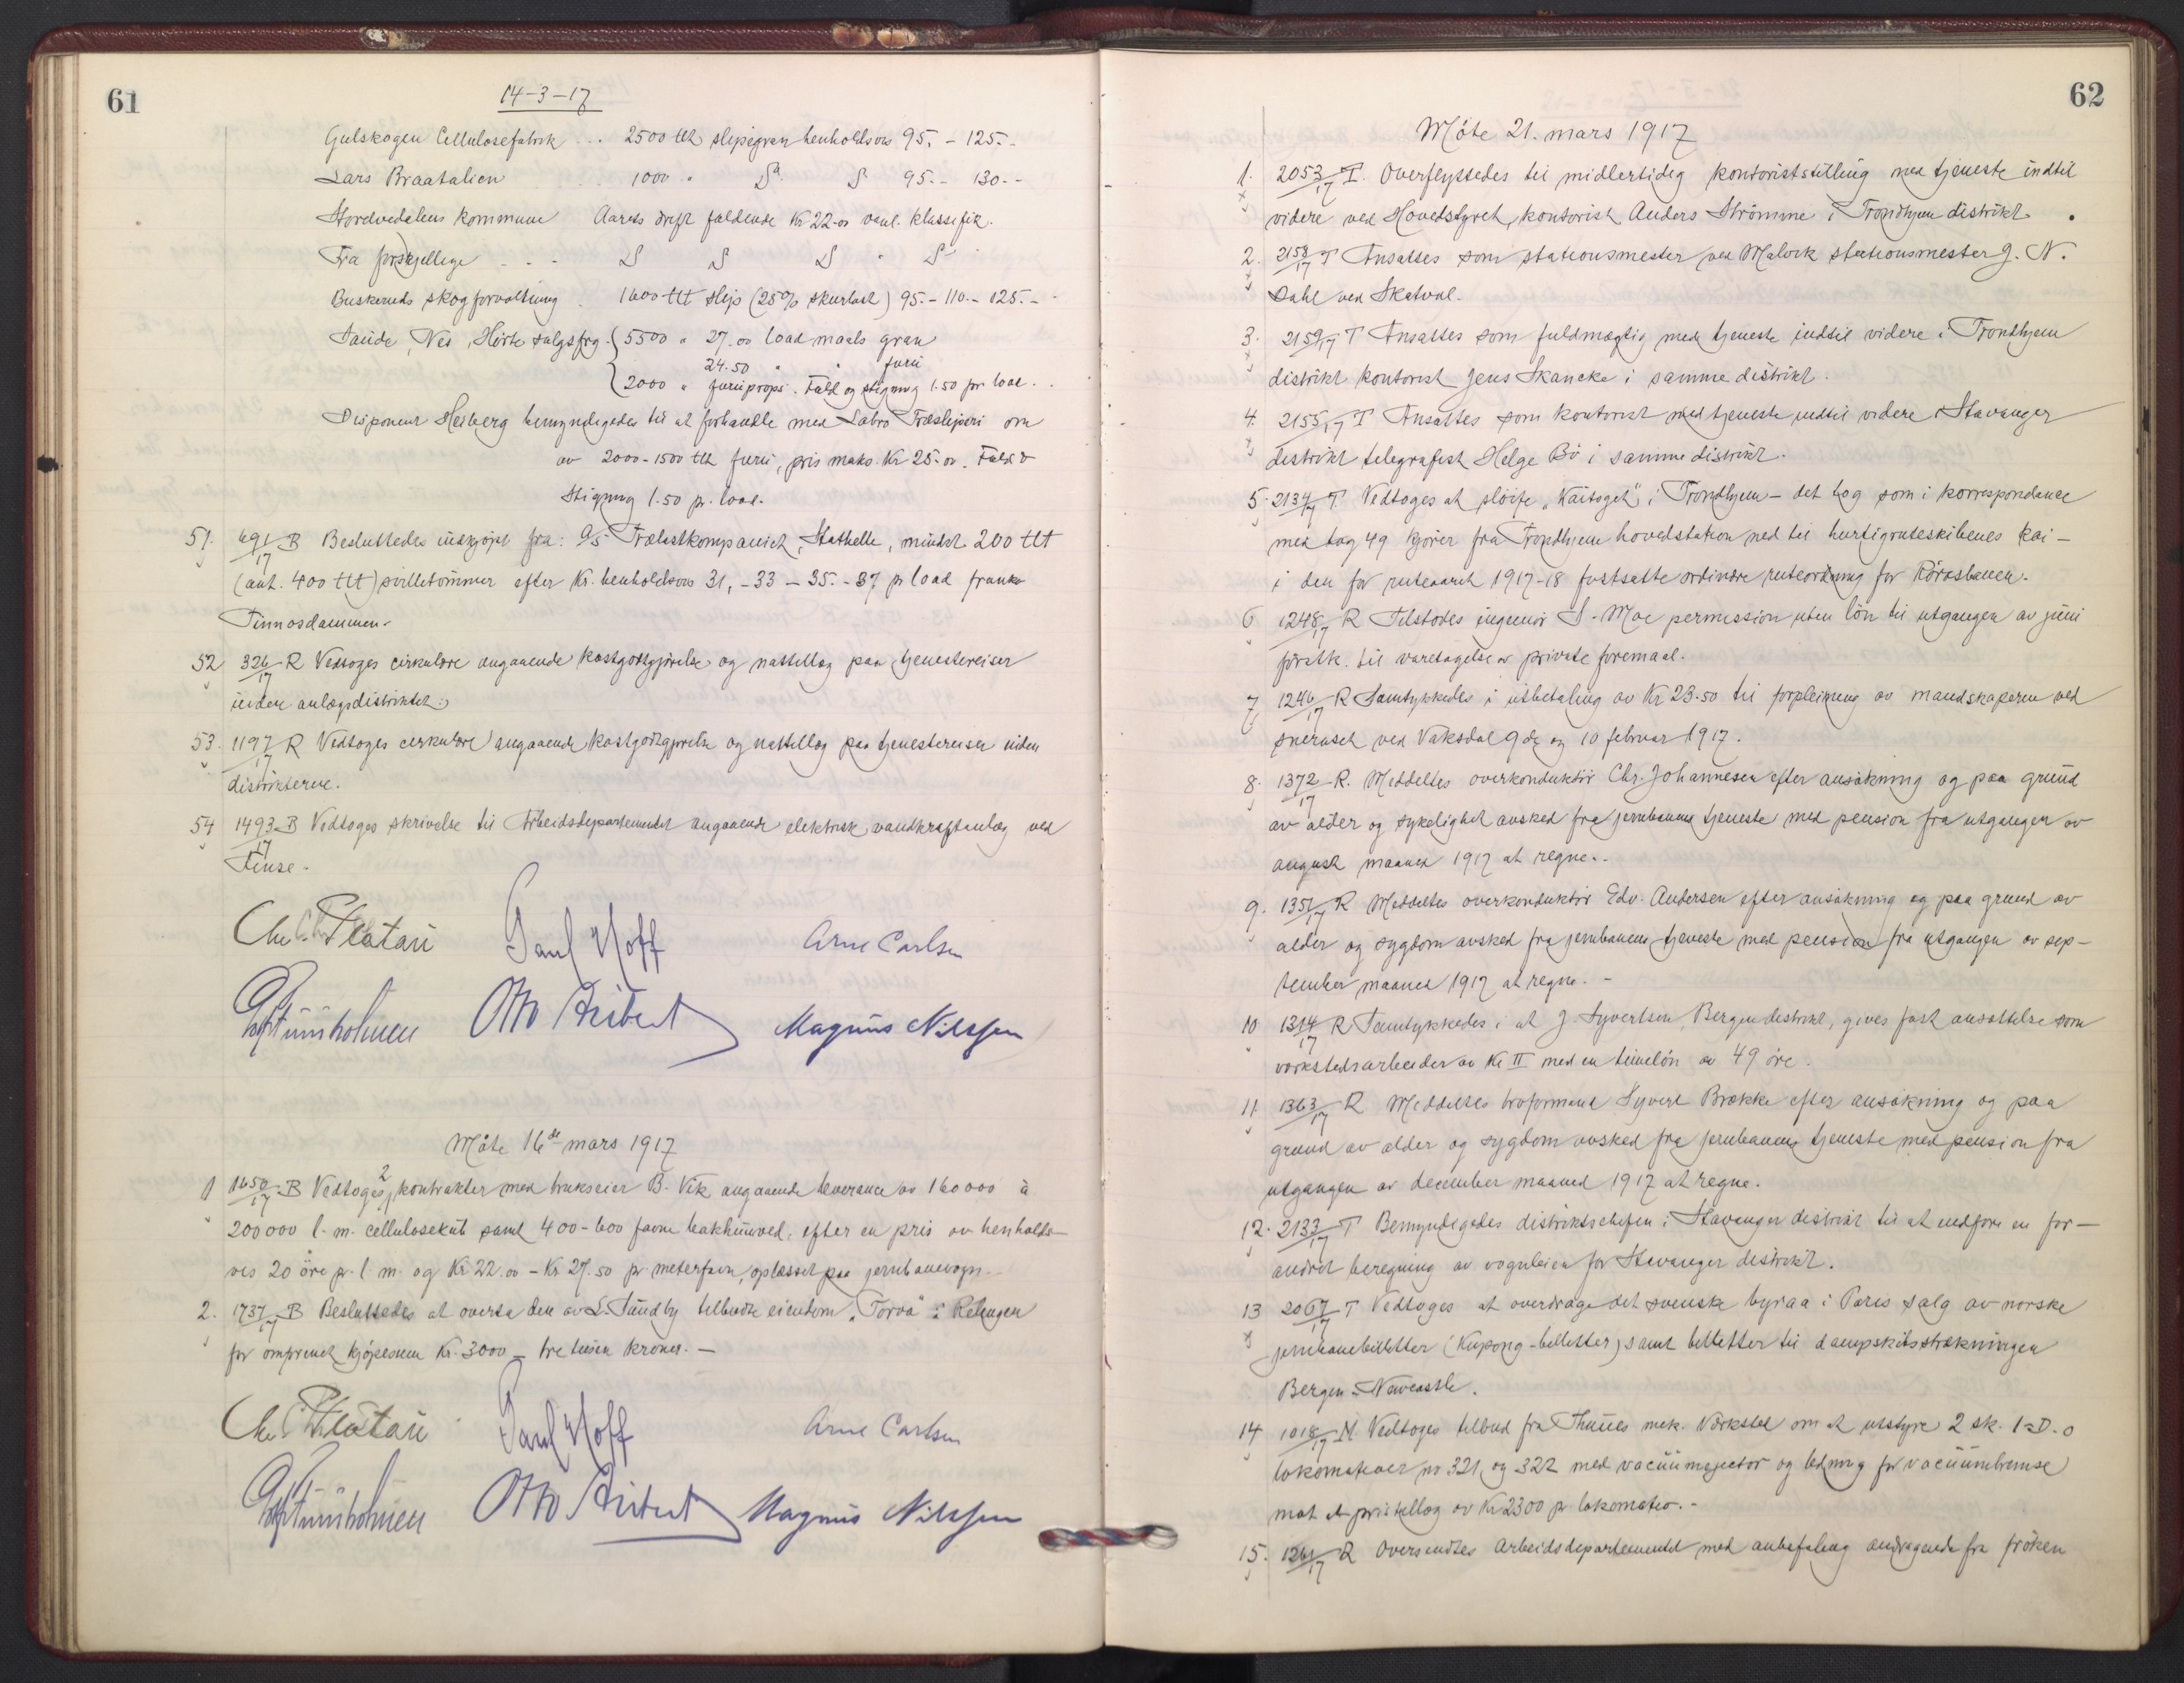 61
14-3-17
Gulskogen Cellulosefabrik ... 2500 tlt slipegran henholdsvis 95.- 125.-
Lars Braatalien 1000 " Do. Do 95.- 130.-
Stordvedalens kommune Aarets drift faldende Kr 22.00 vanl. klassefik.
Fra forskjellige - - - Do Do Do " Do
Buskeruds skogforvaltning 1600 tlt slip (25% skurlast) 95.- 110.- 125.-
Sauide, Nes, Hörte salgsfrg. 5500 " 27.00 load maals gran
24.50 " " furu
2000 " furuprops. Fald og stigning 1.50 pr. load.
Disponent Heiberg bemyndigedes til at forhandle med Labro Træsliperi om
av 2000-1500 tlt furu, pris maks. Kr 25.00. Fald &
Stigning 1.50 pr. load.
51. 691/17 B Besluttedes indkjöpt fra: A/S Trælastkompaniet, Stathelle, mindst 200 tlt
(ant. 400 tlt) svilletömmer efter Kr. henholdsvis 31,- 33 - 35.- 37 pr load franko
Tinnosdammen.
52 326/17 R Vedtoges cirkulære angaaende kostgodtgjörelse og nattillæg paa tjenestereiser
inden anlægsdistriktet.
53. 1197/17 R Vedtoges cirkulære angaaende kostgodtgjörelse og nattillæg paa tjenestereiser inden
distrikterne.
54 1493/17 B Vedtoges skrivelse til Arbeidsdepartementet angaaende elektrisk vandkraftanlæg ved
Finse.
Chr. Platou Paul Hoff Arne Carlsen
Otto Magnus Nilssen
Möte 16de mars 1917
1 1650/17 B Vedtoges 2 kontrakter med brukseier B. Vik angaaende leverance av 160000 à
200000 l.m. cellulosekub samt 400-600 favne bakhunved, efter en pris av henholds-
vis 20 öre pr. l.m. og Kr 22.00 - Kr 27.50 pr meterfavn, oplæsset paa jernbanevogn.
2. 1737/17 B Besluttedes at overta den av L. Sundby tilbudte eiendom "Torva" i Relingen
for omforenet kjöpesum Kr. 3000 - tre tusen kroner. -
Chr. Platou Paul Hoff Arne Carlsen
Otto Magnus Nilssen
62
Möte 21. mars 1917
1. 2053/17 T. Overflyttedes til midlertidig kontoriststilling med tjeneste indtil
videre ved Hovedstyret, kontorist Anders Strömme i Trondhjem distrikt.
2. 2158/17 T Ansattes som stationsmester ved Malvik stationsmester J. N.
Dahl ved Skatval.
3. 2159/17 T Ansattes som fuldmægtig med tjeneste indtil videre i Trondhjem
distrikt kontorist Jens Skancke i samme distrikt.
4. 2155/17 T Ansattes som kontorist med tjeneste indtil videre i Stavanger
distrikt telegrafist Helge Bö i samme distrikt.
5. 2134/17 T. Vedtoges at slöife "Kaitoget" i Trondhjem - det tog som i korrespondance
med tog 49 kjörer fra Trondhjem hovedstation ned til hurtigruteskibenes kai -
i den for ruteaaret 1917-18 fastsatte ordinære ruteordning for Rörosbanen.
6 1248/17 R Tilstodes ingeniör S. Moe permission uten lön til utgangen av juni
förstk. til varetagelse av private foremaal.
7 1246/17 R Samtykkedes i utbetaling av Kr 23.50 til forpleining av mandskaperne ved
sneraset ved Vaksdal 9de og 10 februar 1917.
8. 1372/17 R. Meddeltes overkonduktör Chr. Johannesen efter ansökning og paa grund
av alder og sykelighet avsked fra jernbanens tjeneste med pension fra utgangen av
august maaned 1917 at regne.
9. 1351/17 R Meddeltes overkonduktör Edv. Andersen efter ansökning og paa grund av
alder og sygdom avsked fra jernbanens tjeneste med pension fra utgangen av sep-
tember maaned 1917 at regne. -
10 1314/17 R Samtykkedes i at J. Syvertsen, Bergen distrikt, gives fast ansættelse som
verkstedsarbeider av Kl II med en timelön av 49 öre.
11. 1363/17 R Meddeltes broformand Syvert Brække efter ansökning og paa
grund av alder og sygdom avsked fra jernbanens tjeneste med pension fra
utgangen av december maaned 1917 at regne.
12. 2133/17 T Bemyndigedes distriktschefen i Stavanger distrikt til at indföre en for-
andret beregning av vognleien for Stavanger distrikt.
13 2067/17 T Vedtoges at overdrage det svenske byraa i Paris salg av norske
jernbanebilletter (Kupong-billetter) samt billetter til dampskibsstrækningen
Bergen - Newcastle.
14 1018/17 M. Vedtoges tilbud fra Thunes mek. Værksted om at utstyre 2 stk. 1-D-0
lokomotiver no 321 og 322 med vacuumejector og ledning for vacuumbremse
mot et pristillæg av Kr 2300 pr. lokomotiv. -
15. 1261/17 R Oversendtes Arbeidsdepartementet med anbefaling andragende fra fröken